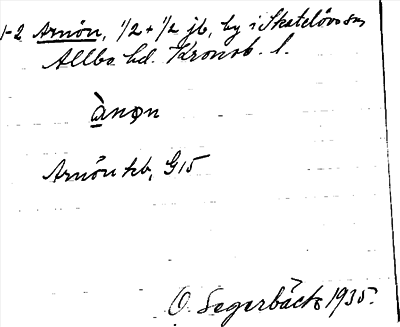 1-2 Arnön, 1/2 + 1/2 jb, by i Skatelövs sn
Allbo hd. Kronob. l.
ànọn
Arnön kb, G15
O. Segerbäck 1935.